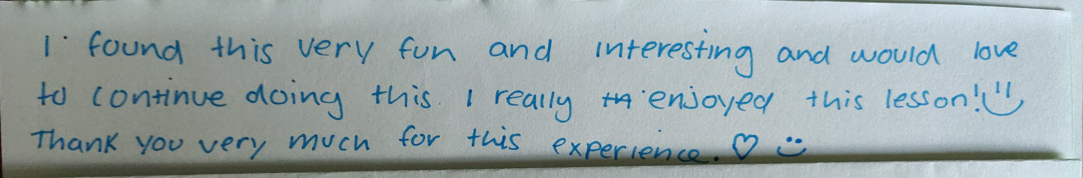 I found this very fun and interesting and would love
to continue doing this. I really enjoyed this lesson! :)
Thank you very much for this experience. ♡ :)